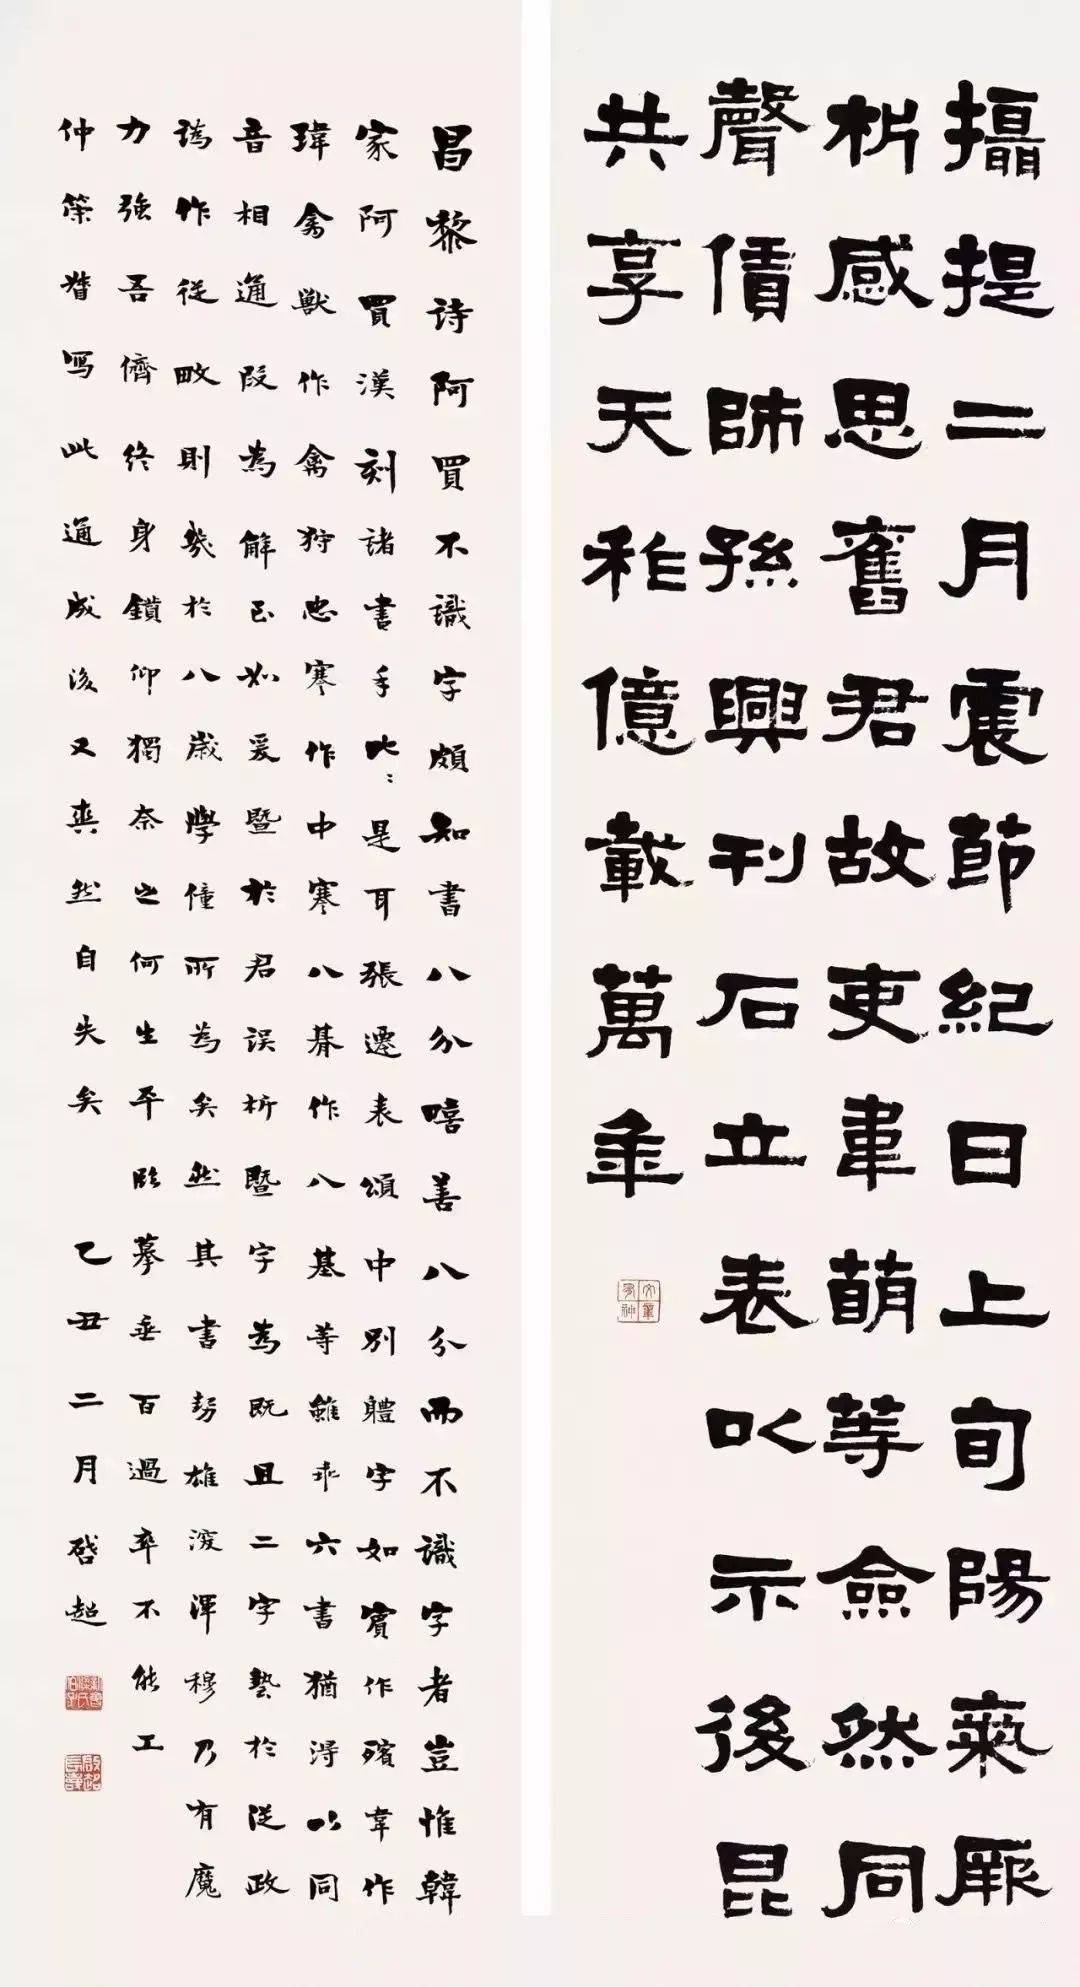 攝提二月震節紀日上旬陽氣厥
析感思舊君故吏韋萌等僉然同
聲賃師孫興刊石立表以示後昆
共享天祚億載萬年
昌黎詩阿買不識字頗知書八分嘻善八分而不識字者豈惟韓
家阿買漢刻諸書手比〻是耳張遷表頌中別體字如賓作殯韋作
瑋禽獸作禽狩忠謇作中謇八朞作八基等雖乖六書猶得以同
音相通段為解已如爰暨於君誤析暨字為既且二字蓺於從政
譌作從畋則幾於八歲學僮所為矣然其書勢雄深渾穆乃有魔
力強吾儕終身鑽仰獨奈之何生平臨摹垂百過卒不能工
仲策督寫此通成後又爽然自失矣 乙丑二月啓超